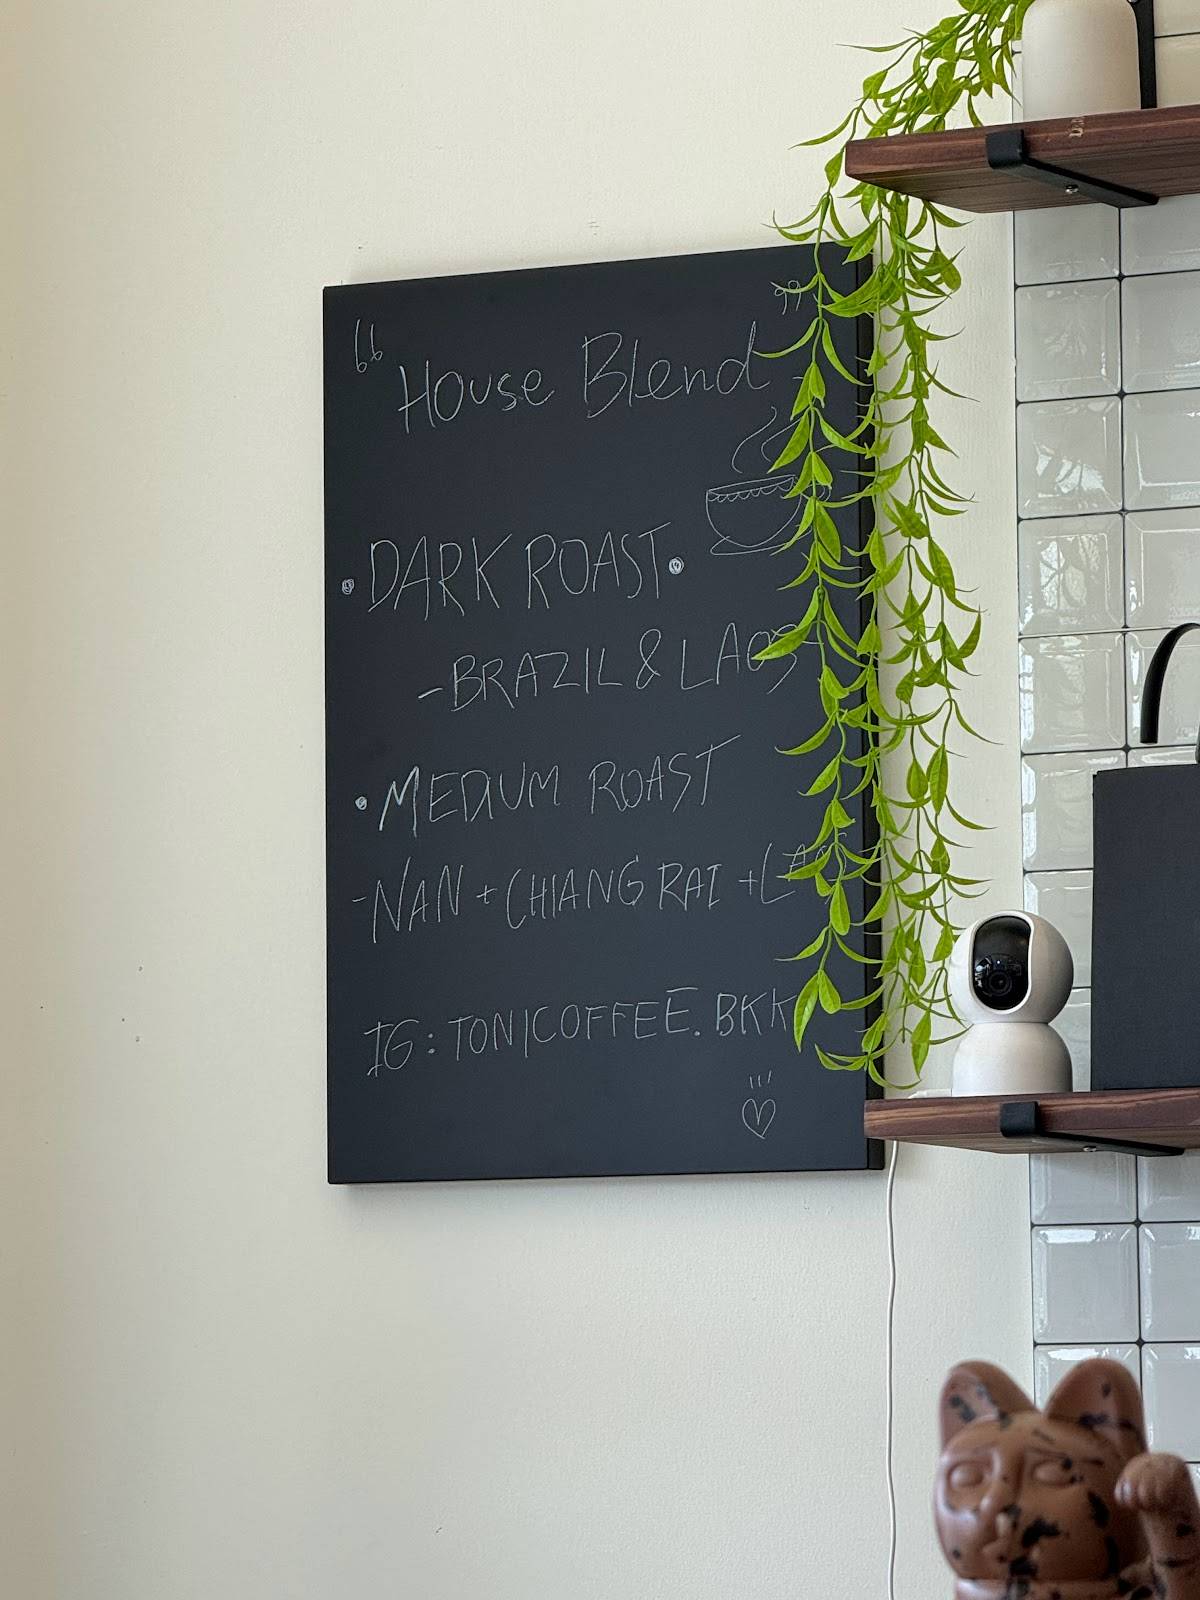 “ House Blend ”
• DARK ROAST •
- BRAZIL & LAOS
• MEDIUM ROAST
- NAN + CHIANG RAI + LAOS
IG : TONICOFFEE.BKK